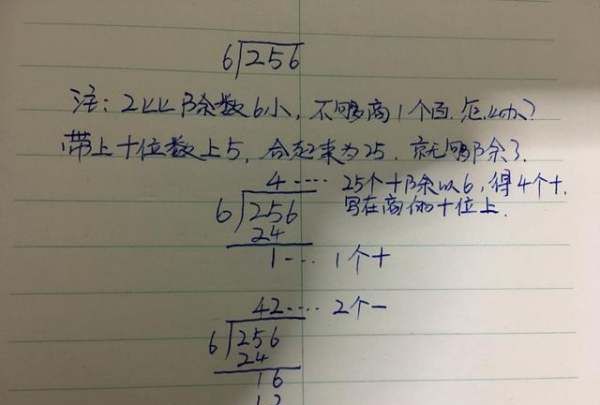 6 256
注：2比除数6小，不够商1个百.怎么办?
带上十位数上5，合起来为25.就够除了.
4···· 25个十除以6，得4个十.
6 256 写在商的十位上.
24
1···· 1个十
42···· 2个一
6 256
24
16
12